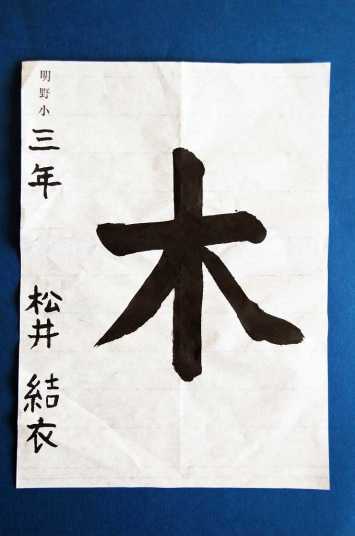 木
明野小
三年
松井 結衣